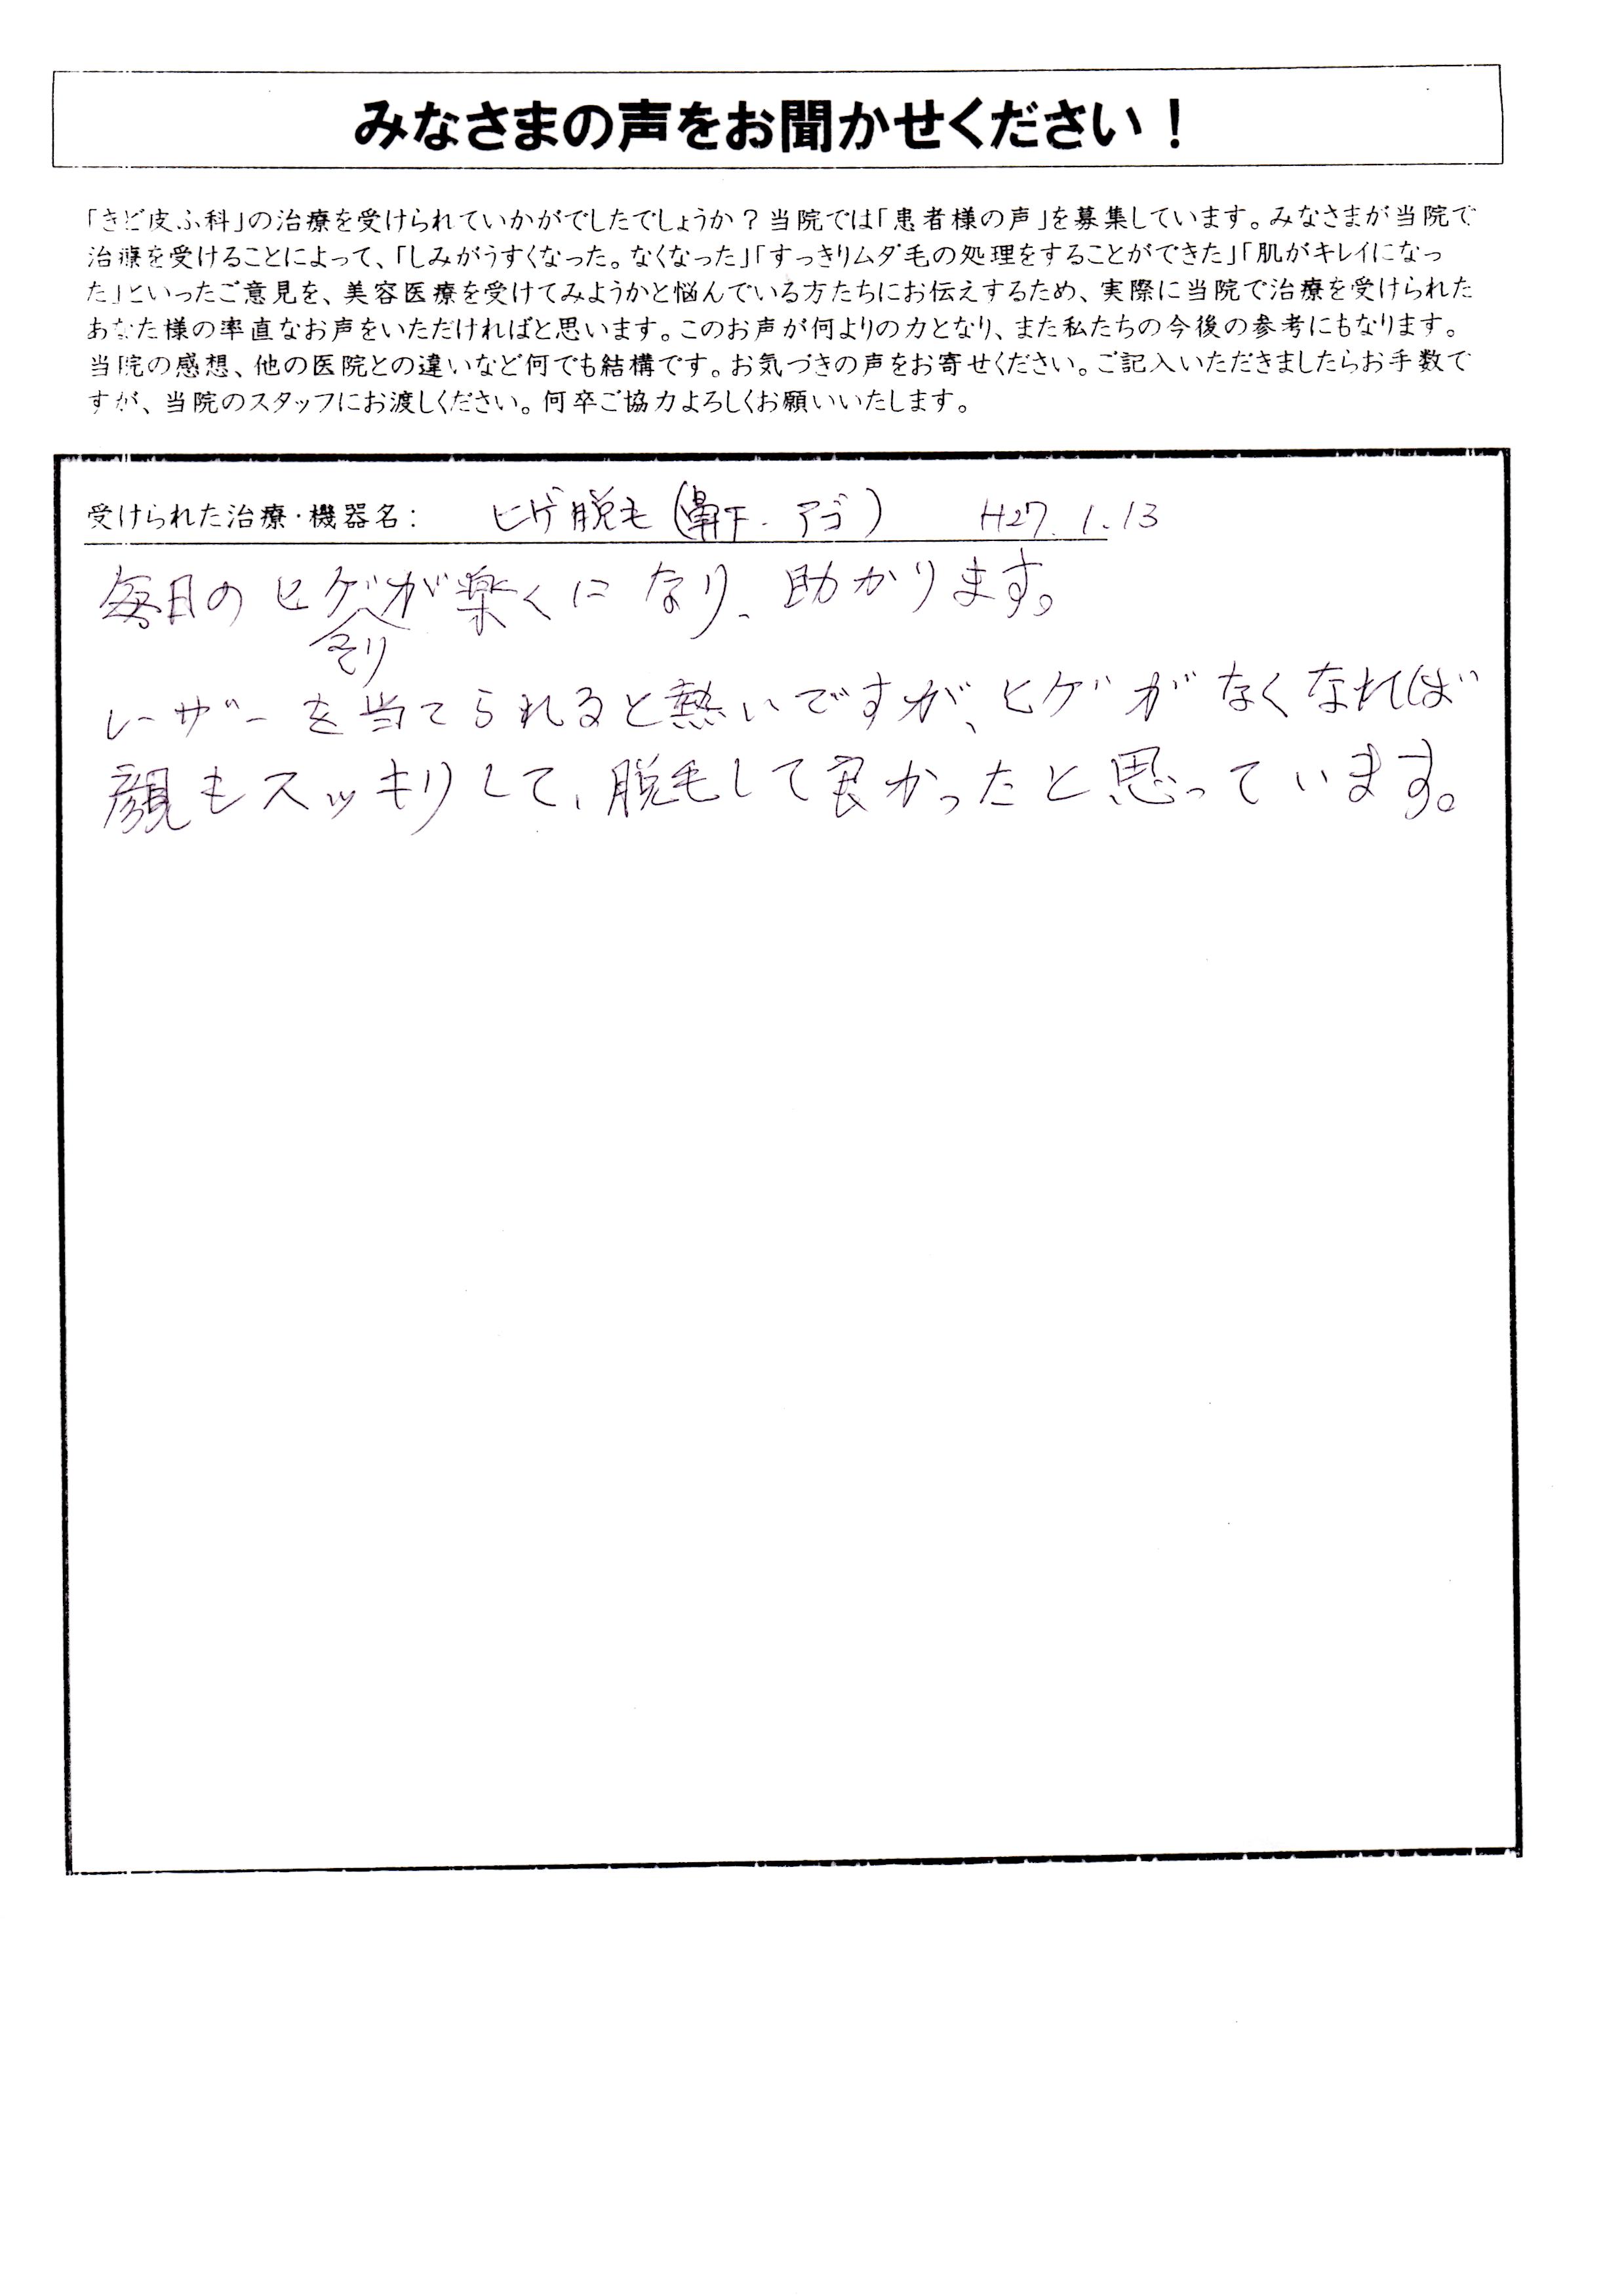 みなさまの声をお聞かせください！
「きど皮ふ科」の治療を受けられていかがでしたでしょうか？当院では「患者様の声」を募集しています。みなさまが当院で
治療を受けることによって、「しみがうすくなった。なくなった」「すっきりムダ毛の処理をすることができた」「肌がキレイになっ
た」といったご意見を、美容医療を受けてみようかと悩んでいる方たちにお伝えするため、実際に当院で治療を受けられた
あなた様の率直なお声をいただければと思います。このお声が何よりの力となり、また私たちの今後の参考にもなります。
当院の感想、他の医院との違いなど何でも結構です。お気づきの声をお寄せください。ご記入いただきましたらお手数で
すが、当院のスタッフにお渡しください。何卒ご協力よろしくお願いいたします。
受けられた治療・機器名： ヒゲ脱毛（鼻下・アゴ） H27.1.13
毎日のヒゲが楽くになり、助かります。
そり
レーザーを当てられると熱いですが、ヒゲがなくなれば
顔もスッキリして、脱毛して良かったと思っています。